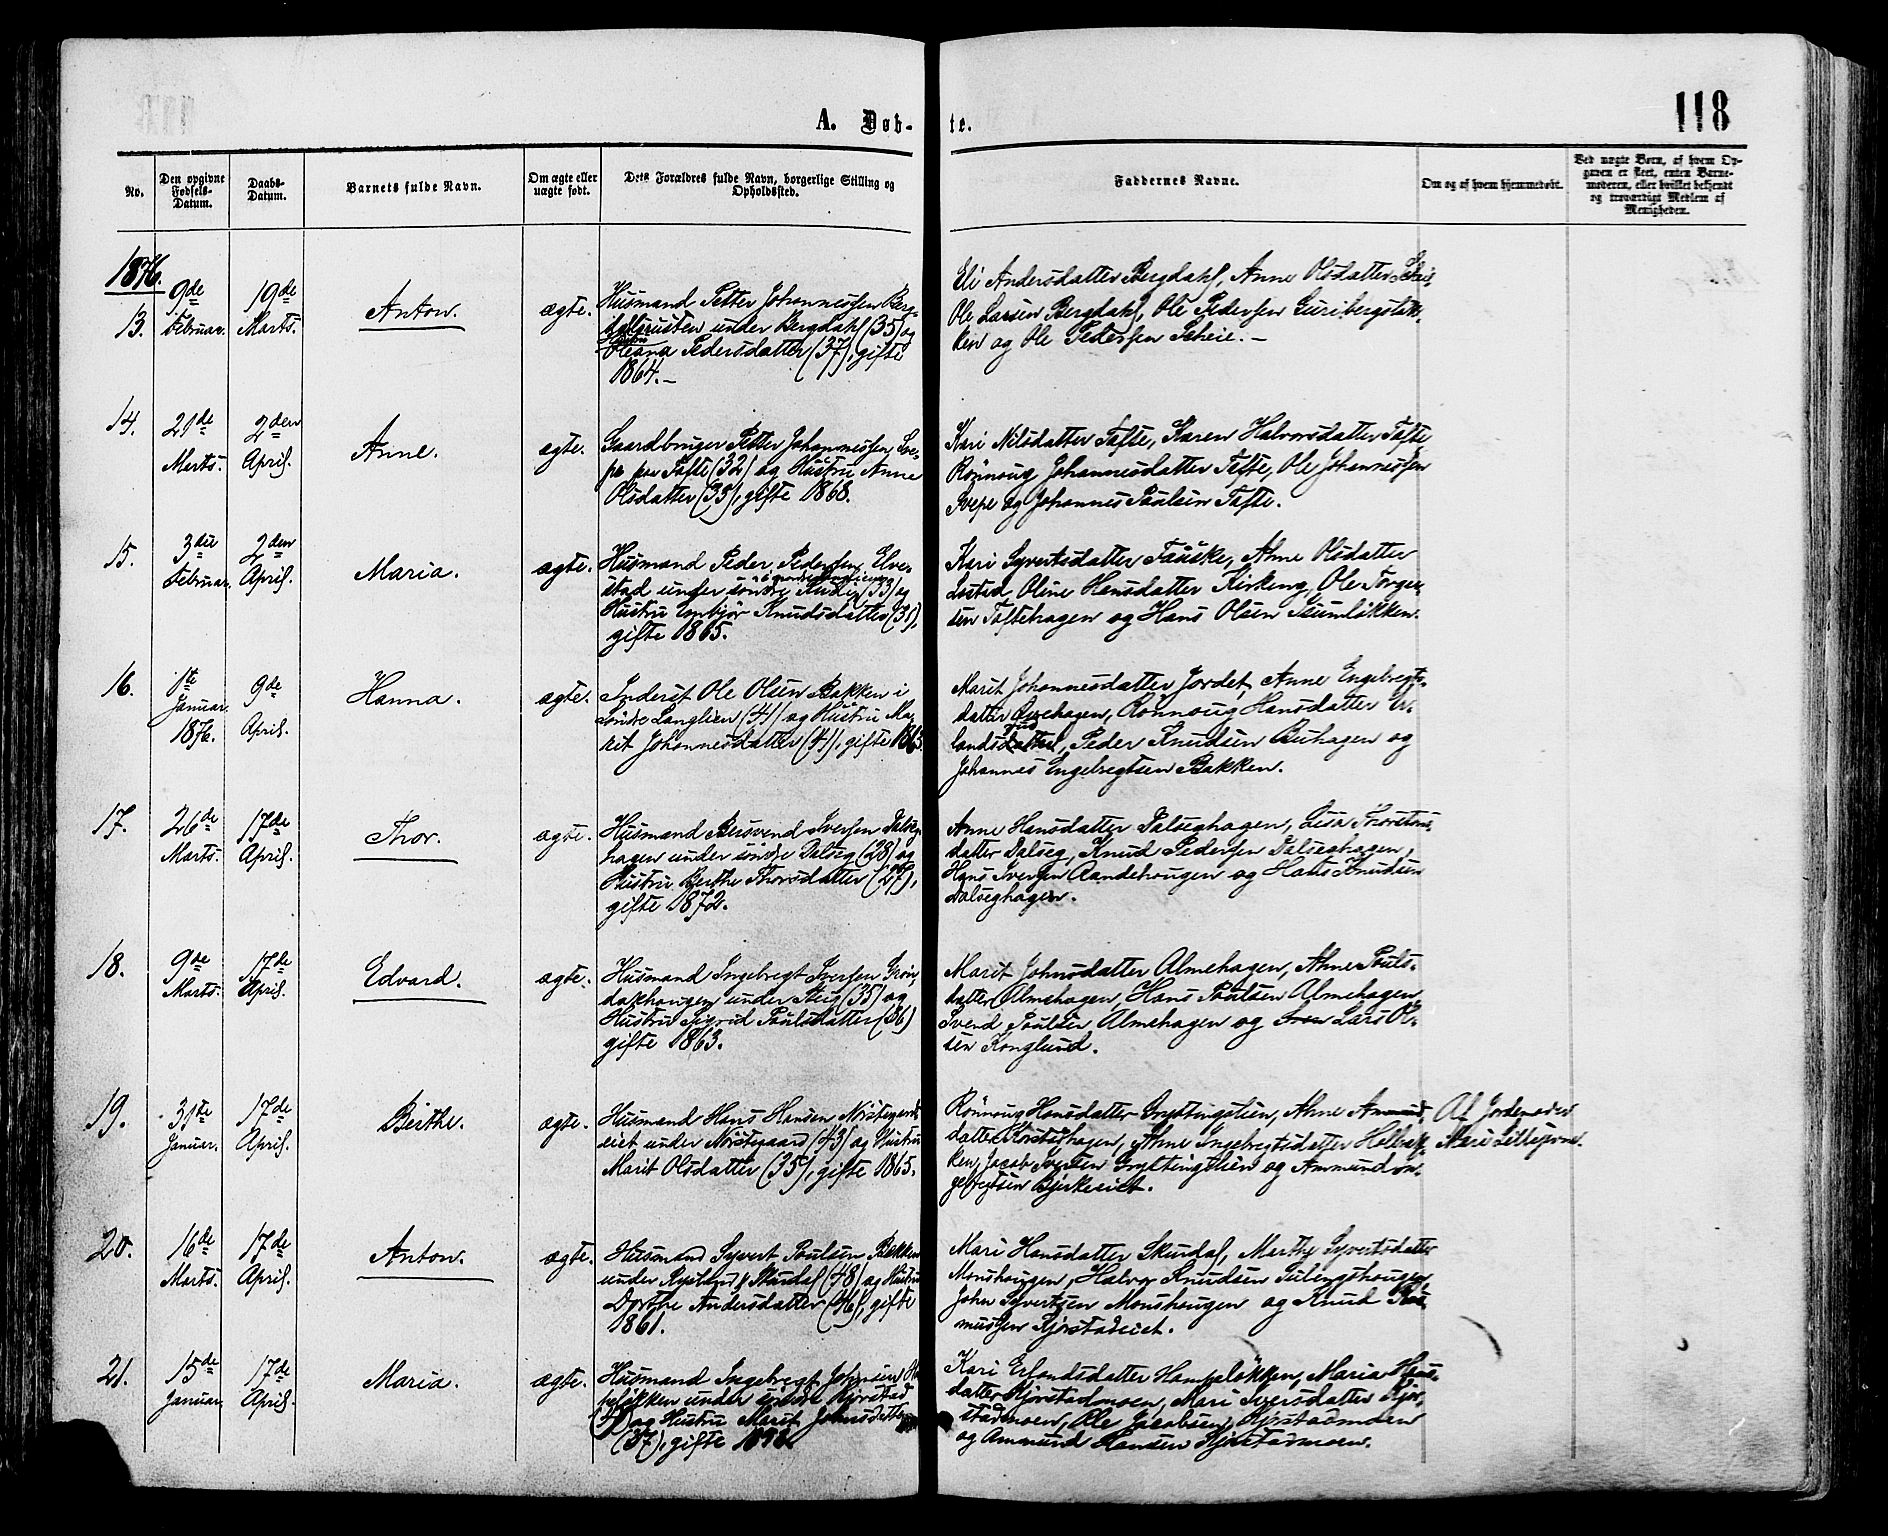 118
A. Døb-
te.
No.
Den opgivne Fødsels-Datum.
Daabs-Datum.
Barnets fulde Navn.
Om ægte eller uægte født.
Dets Forældres fulde Navn, borgerlige Stilling og Opholdssted.
Faddernes Navne.
Om og af hvem hjemmedøbt.
Ved uægte Børn, af hvem Op-
gaven er skeet, enten Barne-
moderen, eller hvilket bekjendt
og troværdigt Medlem af
Menigheden.
1876.
13.
9de Februar.
19de Marts.
Anton.
ægte.
Husmand Petter Johannessen Berg-
dalsrusten under Bergdahl (35) og
Hustru
Oleana Pedersdatter (37), gifte
1864.-
Eli Andersdatter Bergdahl, Anne Olsdatter Scheie,
Ole Larsen Bergdahl, Ole Pedersen Guribergsløk-
ken og Ole Pedersen Scheie.-
14.
21de Marts.
2den April.
Anne.
ægte.
Gaardbruger Petter Johannessen Sve-
pe paa Tofte (32) og Hustru Anne
Olsdatter (35), gifte 1868.
Kari Nilsdatter Tofte, Karen Halvorsdatter Tofte
Rønnoug Johannesdatter Tofte, Ole Johannessen
Svepe og Johannes Paulsen Tofte.
15.
3die Februar.
2den April.
Maria.
ægte.
Husmand Peder Pedersen Elve-
stad under søndre (33) og
Hustru Embjør Knudsdatter (31),
gifte 1865.
Kari Syvertsdatter Fauske, Anne Olsdatter
Lostad, Oline Hansdatter Kirkeng, Ole Torger-
sen Toftehagen og Hans Olsen Isumløkken.
16.
1ste Januar 1876.
9de April.
Hanna.
ægte.
Inderst Ole Olsen Bakken i
søndre Langlien (41) og Hustru Ma-
rit Johannesdatter (41), gifte 1863.
Marit Johannesdatter Jordet, Anne Engebregts-
datter Rønnoug Hansdatter Er-
Peder Knudsen Buhagen og
Johannes Engebregtsen Bakken.
17.
26de Marts.
17de April.
Thor.
ægte.
Husmand Bersvend Iversen Dalseg-
hagen under søndre Dalseg (28) og
Hustru Berthe Thorsdatter (27),
gifte 1872.
Anne Hansdatter Dalseghagen, Lisa Thorstens-
datter Dalseg, Knud Pedersen Dalseghagen,
Hans Iversen Randehougen og Hans Knudsen
Dalseghagen.
18.
9de Marts.
17de April.
Edvard.
ægte.
Husmand Ingebregt Iversen Grøn-
dalshaugen under Steig (35) og
Hustru Sigrid Paulsdatter (36)
gifte 1863.
Marit Johnsdatter Almehagen, Anne Pauls-
datter Almehagen, Hans Paulsen Almehagen
Svend Paulsen Almehagen og Lars Ol-
sen Konglund.
19.
31te Januar.
17de April.
Berthe.
ægte.
Husmand Hans Hansen Nørstegaards-
eiet under Nørstegaard (43) og Hustru
Marit Olsdatter (35), gifte 1865.
Rønnoug Hansdatter Gryttingslien, Anne Amund-
datter Kjorstadhagen, Anne Ingebregtsdatter Helbak-
ken, Jacob Iversen Gryttingslien og Ammund In-
gebregtsen Bjerkeeiet.
Af Jordemoder
Mari Lillegjorde.
20.
16de Marts.
17de April.
Anton.
ægte.
Husmand Syvert Paulsen Bakken
under Rysland, Skurdal (48) og Hustru
Dorthe Andersdatter (46), gifte
1861.
Mari Hansdatter Skurdal, Marthe Syvertsdatter
Monshougen, Halvor Knudsen Tulengshougen,
John Syvertsen Monshougen og Knud Ras-
mussen Kjorstadeiet.
21.
15de Januar.
17de April.
Maria.
ægte.
Husmand Ingebregt Johnsen Ham-
peløkken under søndre Kjorstad
og Hustru Marit Johnsdatter
(37), gifte
Kari Erlandsdatter Hampeløkken, Maria Hans-
datter Kjorstadmoen, Mari Iversdatter Kjor-
stadmoen, Ole Jacobsen Kjorstadmoen
og Ammund Hansen Kjorstadmoen.